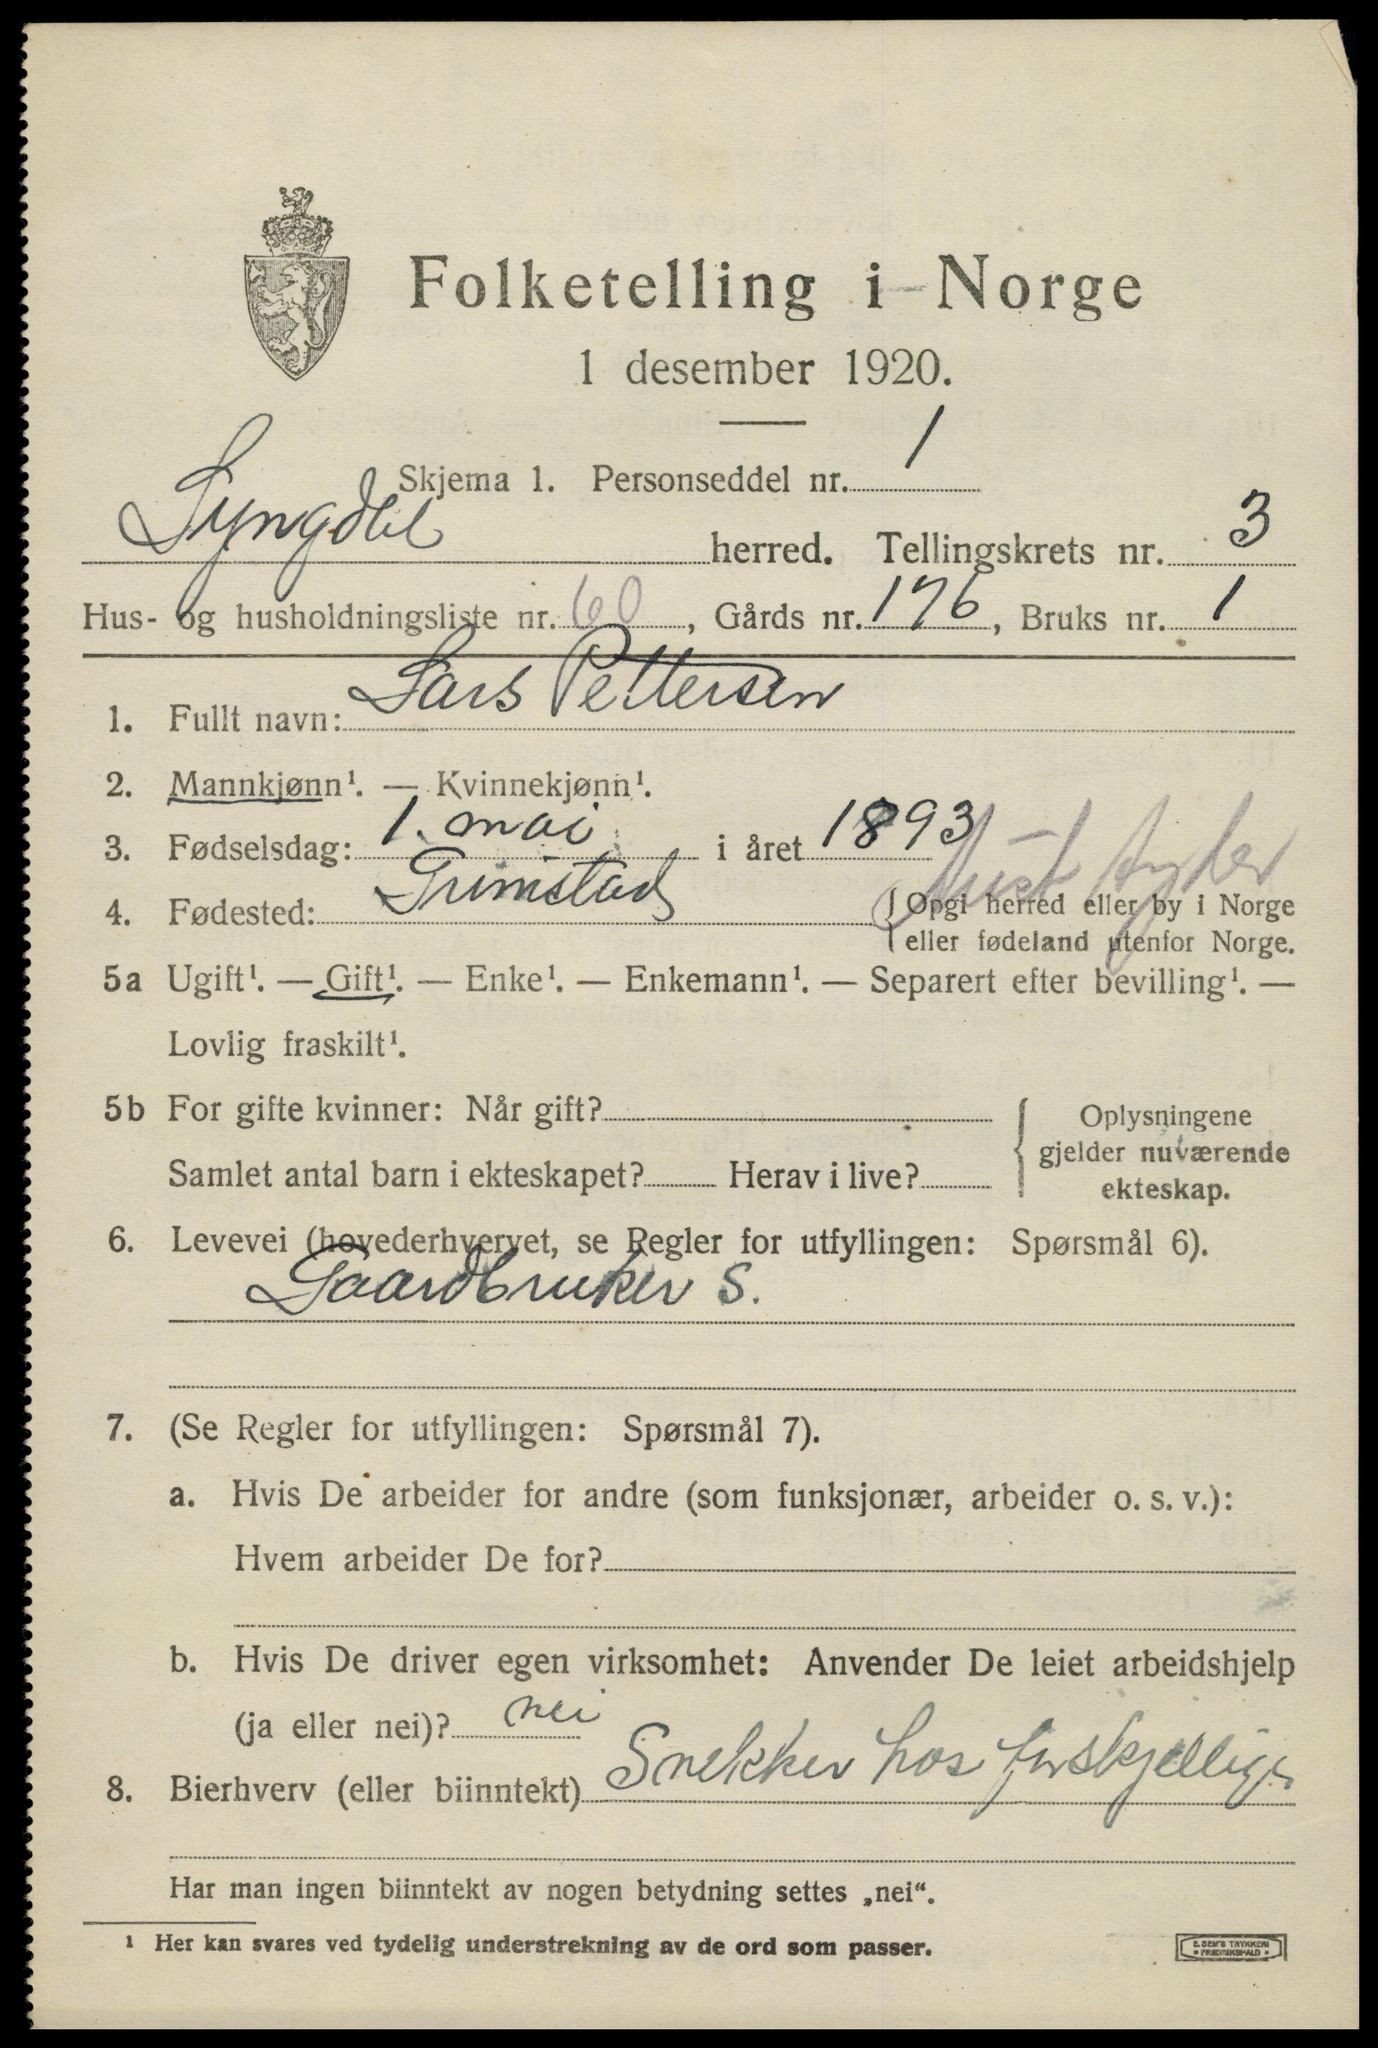 Folketelling i Norge
1 desember 1920.
Skjema 1. Personseddel nr. 1
Lyngdal herred. Tellingskrets nr. 3
Hus- og husholdningsliste nr. 60, Gårds nr. 176, Bruks nr. 1
1. Fullt navn: Lars Pettersen
2. Mannkjønn¹. — Kvinnekjønn¹.
3. Fødselsdag: 1. mai i året 1893
Aust Agder
4. Fødested: Grimstad { Opgi herred eller by i Norge
eller fødeland utenfor Norge.
5a Ugift¹. — Gift¹. — Enke¹. — Enkemann¹. — Separert efter bevilling¹. —
Lovlig fraskilt¹.
5b For gifte kvinner: Når gift?
Samlet antal barn i ekteskapet? Herav i live?
{ Oplysningene
gjelder nuværende
ekteskap.
6. Levevei (hovederhvervet, se Regler for utfyllingen: Spørsmål 6).
Gaardbruker S.
7. (Se Regler for utfyllingen: Spørsmål 7).
a. Hvis De arbeider for andre (som funksjonær, arbeider o. s. v.):
Hvem arbeider De for?
b. Hvis De driver egen virksomhet: Anvender De leiet arbeidshjelp
(ja eller nei)? nei
8. Bierhverv (eller biinntekt) Snekker hos forskjellige
Har man ingen biinntekt av nogen betydning settes „nei“.
¹ Her kan svares ved tydelig understrekning av de ord som passer.
E. SEM'S TRYKKERI
• FREDRIKSHALD •